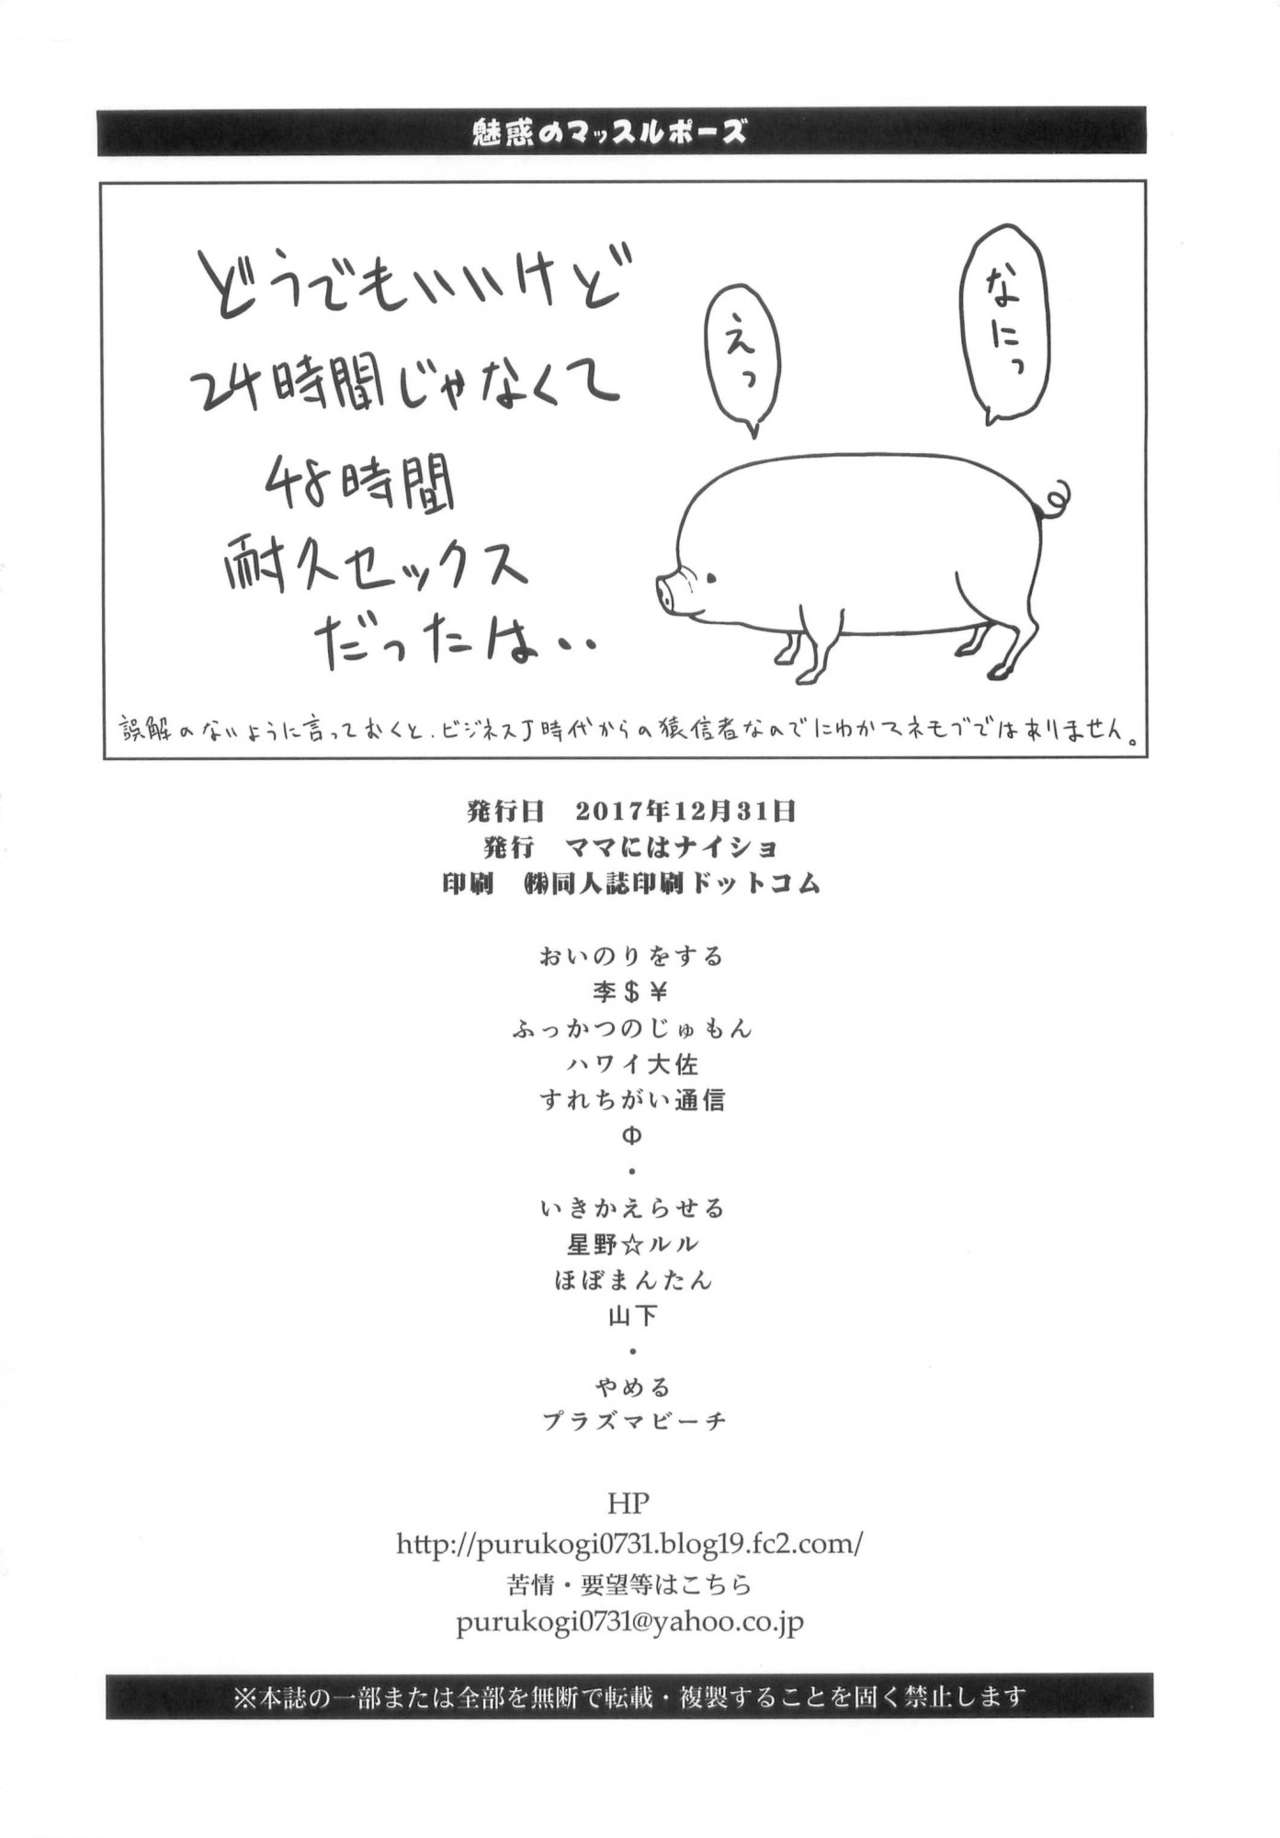 魅惑のマッスルポーズ
どうでもいいけど
24時間じゃなくて
48時間
耐久セックス
だったは・・
なにっ
えっ
誤解のないように言っておくと、ビジネスJ時代からの猿信者なのでにわかマネモブではありません。
発行日　2017年12月31日
発行　ママにはナイショ
印刷　㈱同人誌印刷ドットコム
おいのりをする
李＄￥
ふっかつのじゅもん
ハワイ大佐
すれちがい通信
Φ
・
いきかえらせる
星野☆ルル
ほぼまんたん
山下
・
やめる
プラズマビーチ
HP
http://purukogi0731.blog19.fc2.com/
苦情・要望等はこちら
purukogi0731@yahoo.co.jp
※本誌の一部または全部を無断で転載・複製することを固く禁止します